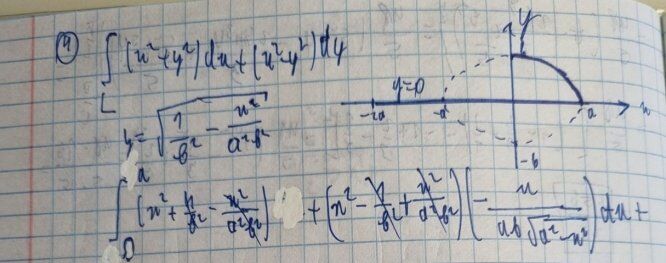 ④ ∫_L (x²+y²)dx+(x²-y²)dy
y
y=0
-2a -a a x
y = √(1/b² - x²/(a²b²))
-b
∫_0^a (x² + 1/b² - x²/(a²b²)) + (x² - 1/b² + x²/(a²b²)) (- x/(ab√(a²-x²))) dx +